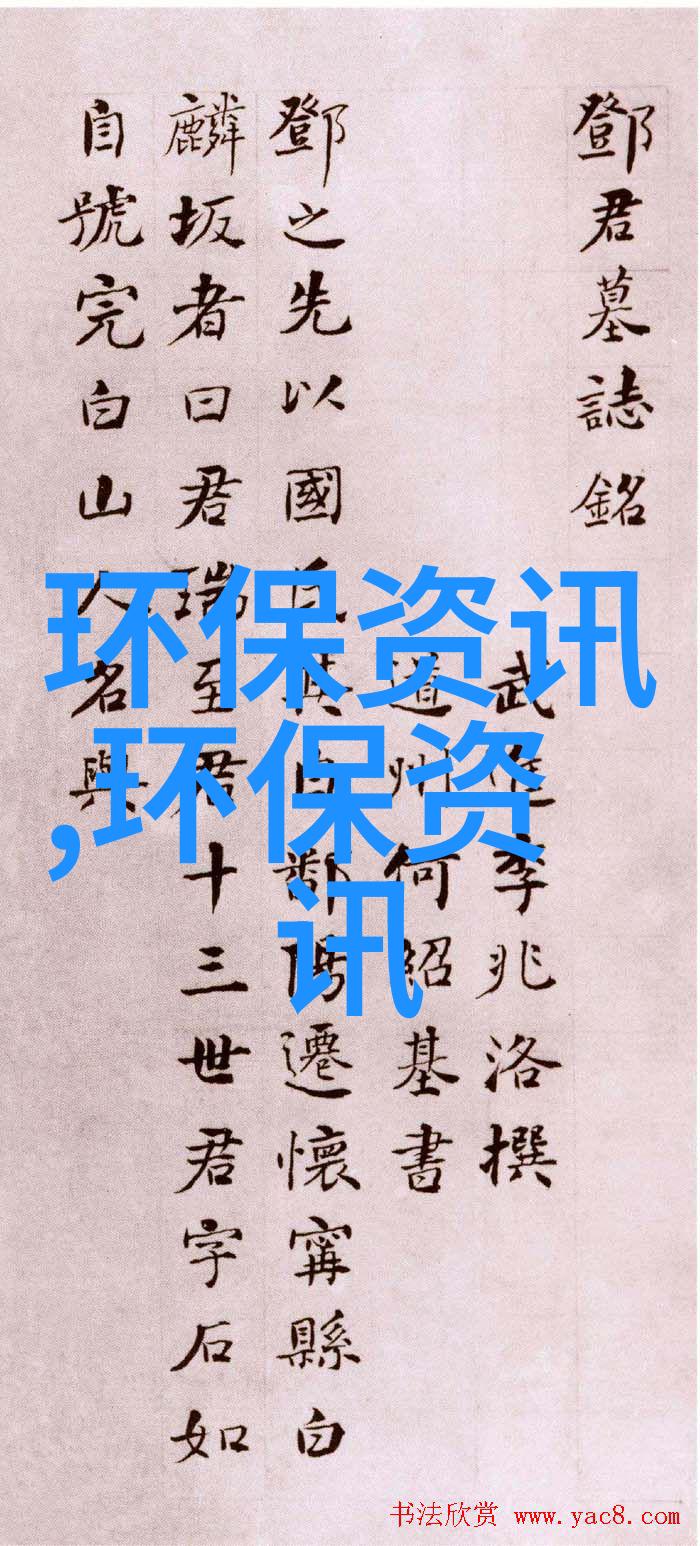 鄧君墓誌銘
武進李兆洛撰
道州何紹基書
鄧之先以國氏其自鄱陽遷懷甯縣白
麟坂者曰君瑞至君十三世君字石如
自號完白山人名與
环保资讯
,环保资
讯
书法欣赏 www.yac8.com